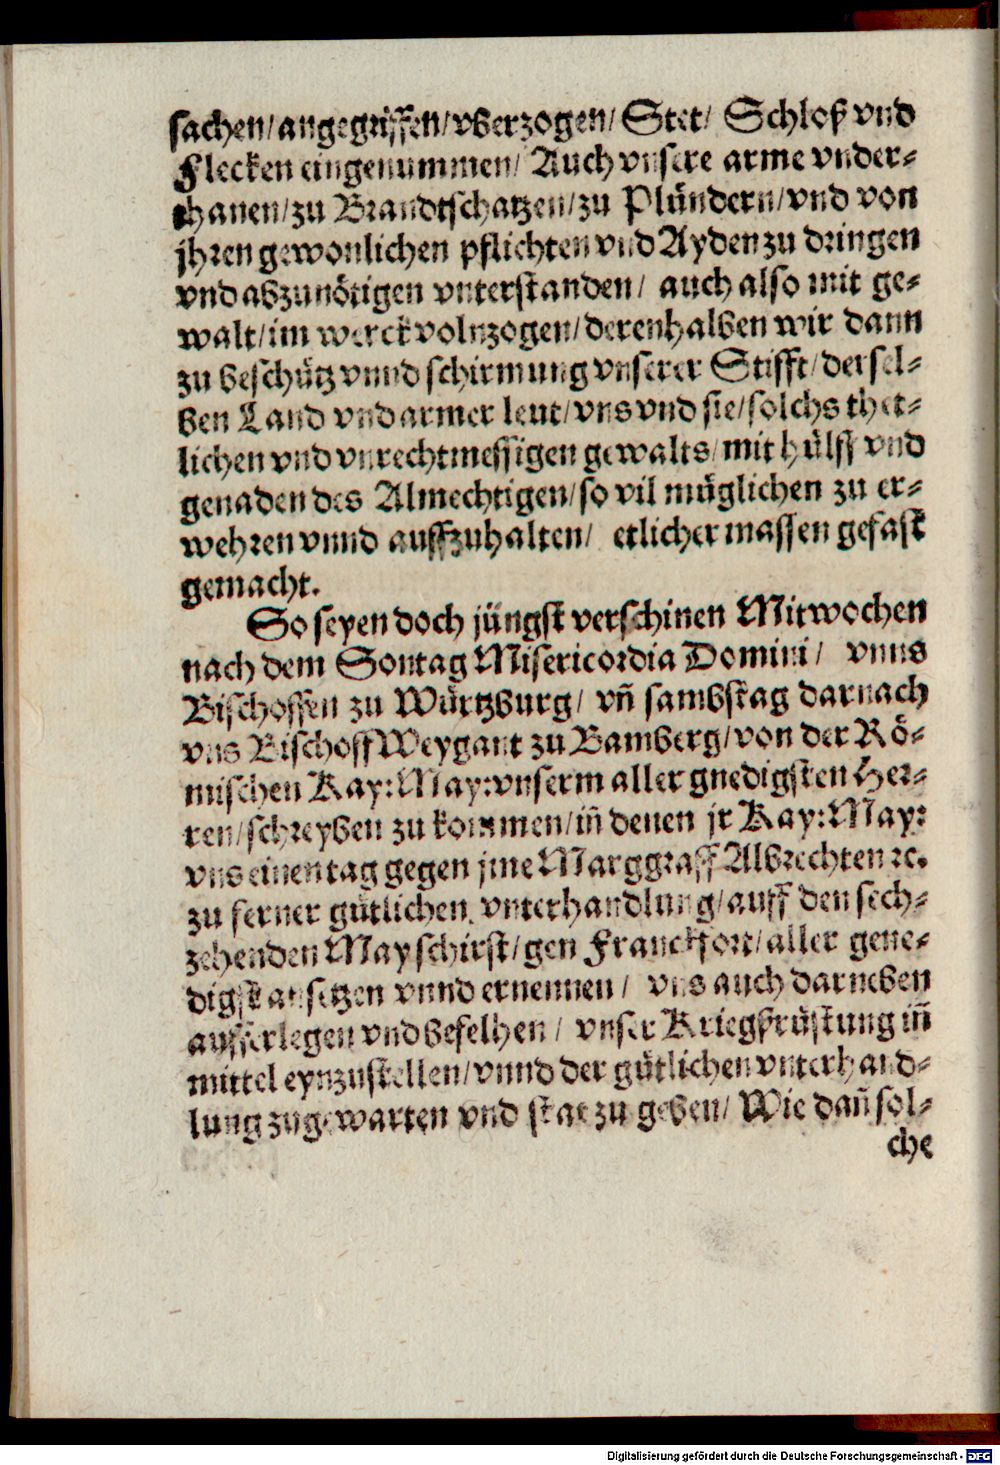 sachen/angegriffen/vberzogen/Stet/ Schloß vnd
Flecken eingenummen/ Auch vnsere arme vnder-
thanen/zu Brandtschatzen/zu Plündern/vnd von
jhren gewonlichen pflichten vnd Ayden zu dringen
vnd abzunötigen vnterstanden/ auch also mit ge-
walt/im werck volnzogen/derenhalben wir dann
zu beschütz vnnd schirmung vnserer Stifft/dersel-
ben Land vnd armer leut/vns vnd sie/solchs thet-
lichen vnd vnrechtmessigen gewalts/mit hülff vnd
genaden des Almechtigen/so vil müglichen zu er-
wehren vnnd auffzuhalten/ etlicher massen gefast
gemacht.
So seyen doch jüngst verschinen Mitwochen
nach dem Sontag Misericordia Domini/ vnns
Bischoffen zu Würtzburg/ vñ sambstag darnach
vns Bischoff Weygant zu Bamberg/von der Rö-
mischen Kay:May:vnserm aller gnedigsten Her-
ren/schreyben zu kommen/iñ denen jr Kay:May:
vns einen tag gegen jme Marggraff Albrechten ꝛc.
zu ferner gütlichen vnterhandlung/auff den sech-
zehenden May schirst/gen Franckfort/aller gene-
digst ansetzen vnnd ernennen/ vns auch darneben
aufferlegen vnd befelhen/ vnser Kriegßrüstung iñ
mittel eynzustellen/vnnd der gütlichen vnterhand-
lung zugewarten vnd stat zu geben/ Wie dañ sol-
che
Digitalisierung gefördert durch die Deutsche Forschungsgemeinschaft - DFG